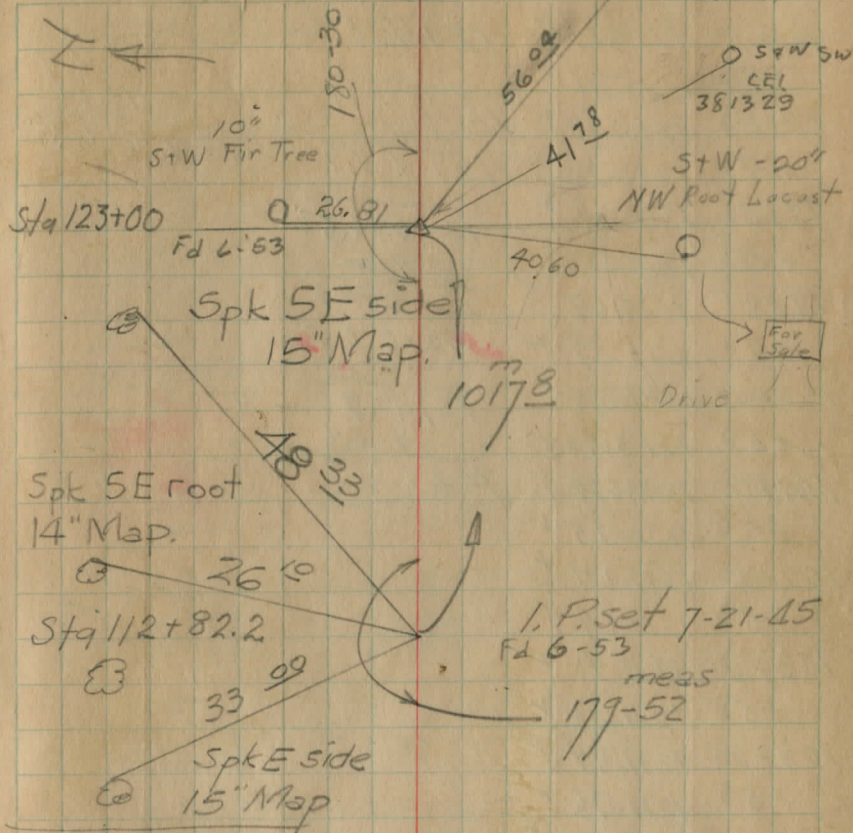 180-30
56 04
S+W SW
CEL
381329
10"
S+W Fir Tree
41 78
S+W - 20"
NW Root Locust
Sta 123+00
26.81
Fd 6-53
40.60
Spk SE side
15" Map.
For
Sale
1017 8
m
Drive
48 33
Spk SE root
14" Map.
26 10
Sta 112+82.2
I.P. set 7-21-45
Fd 6-53
meas
179-52
33 09
Spk E side
15" Map